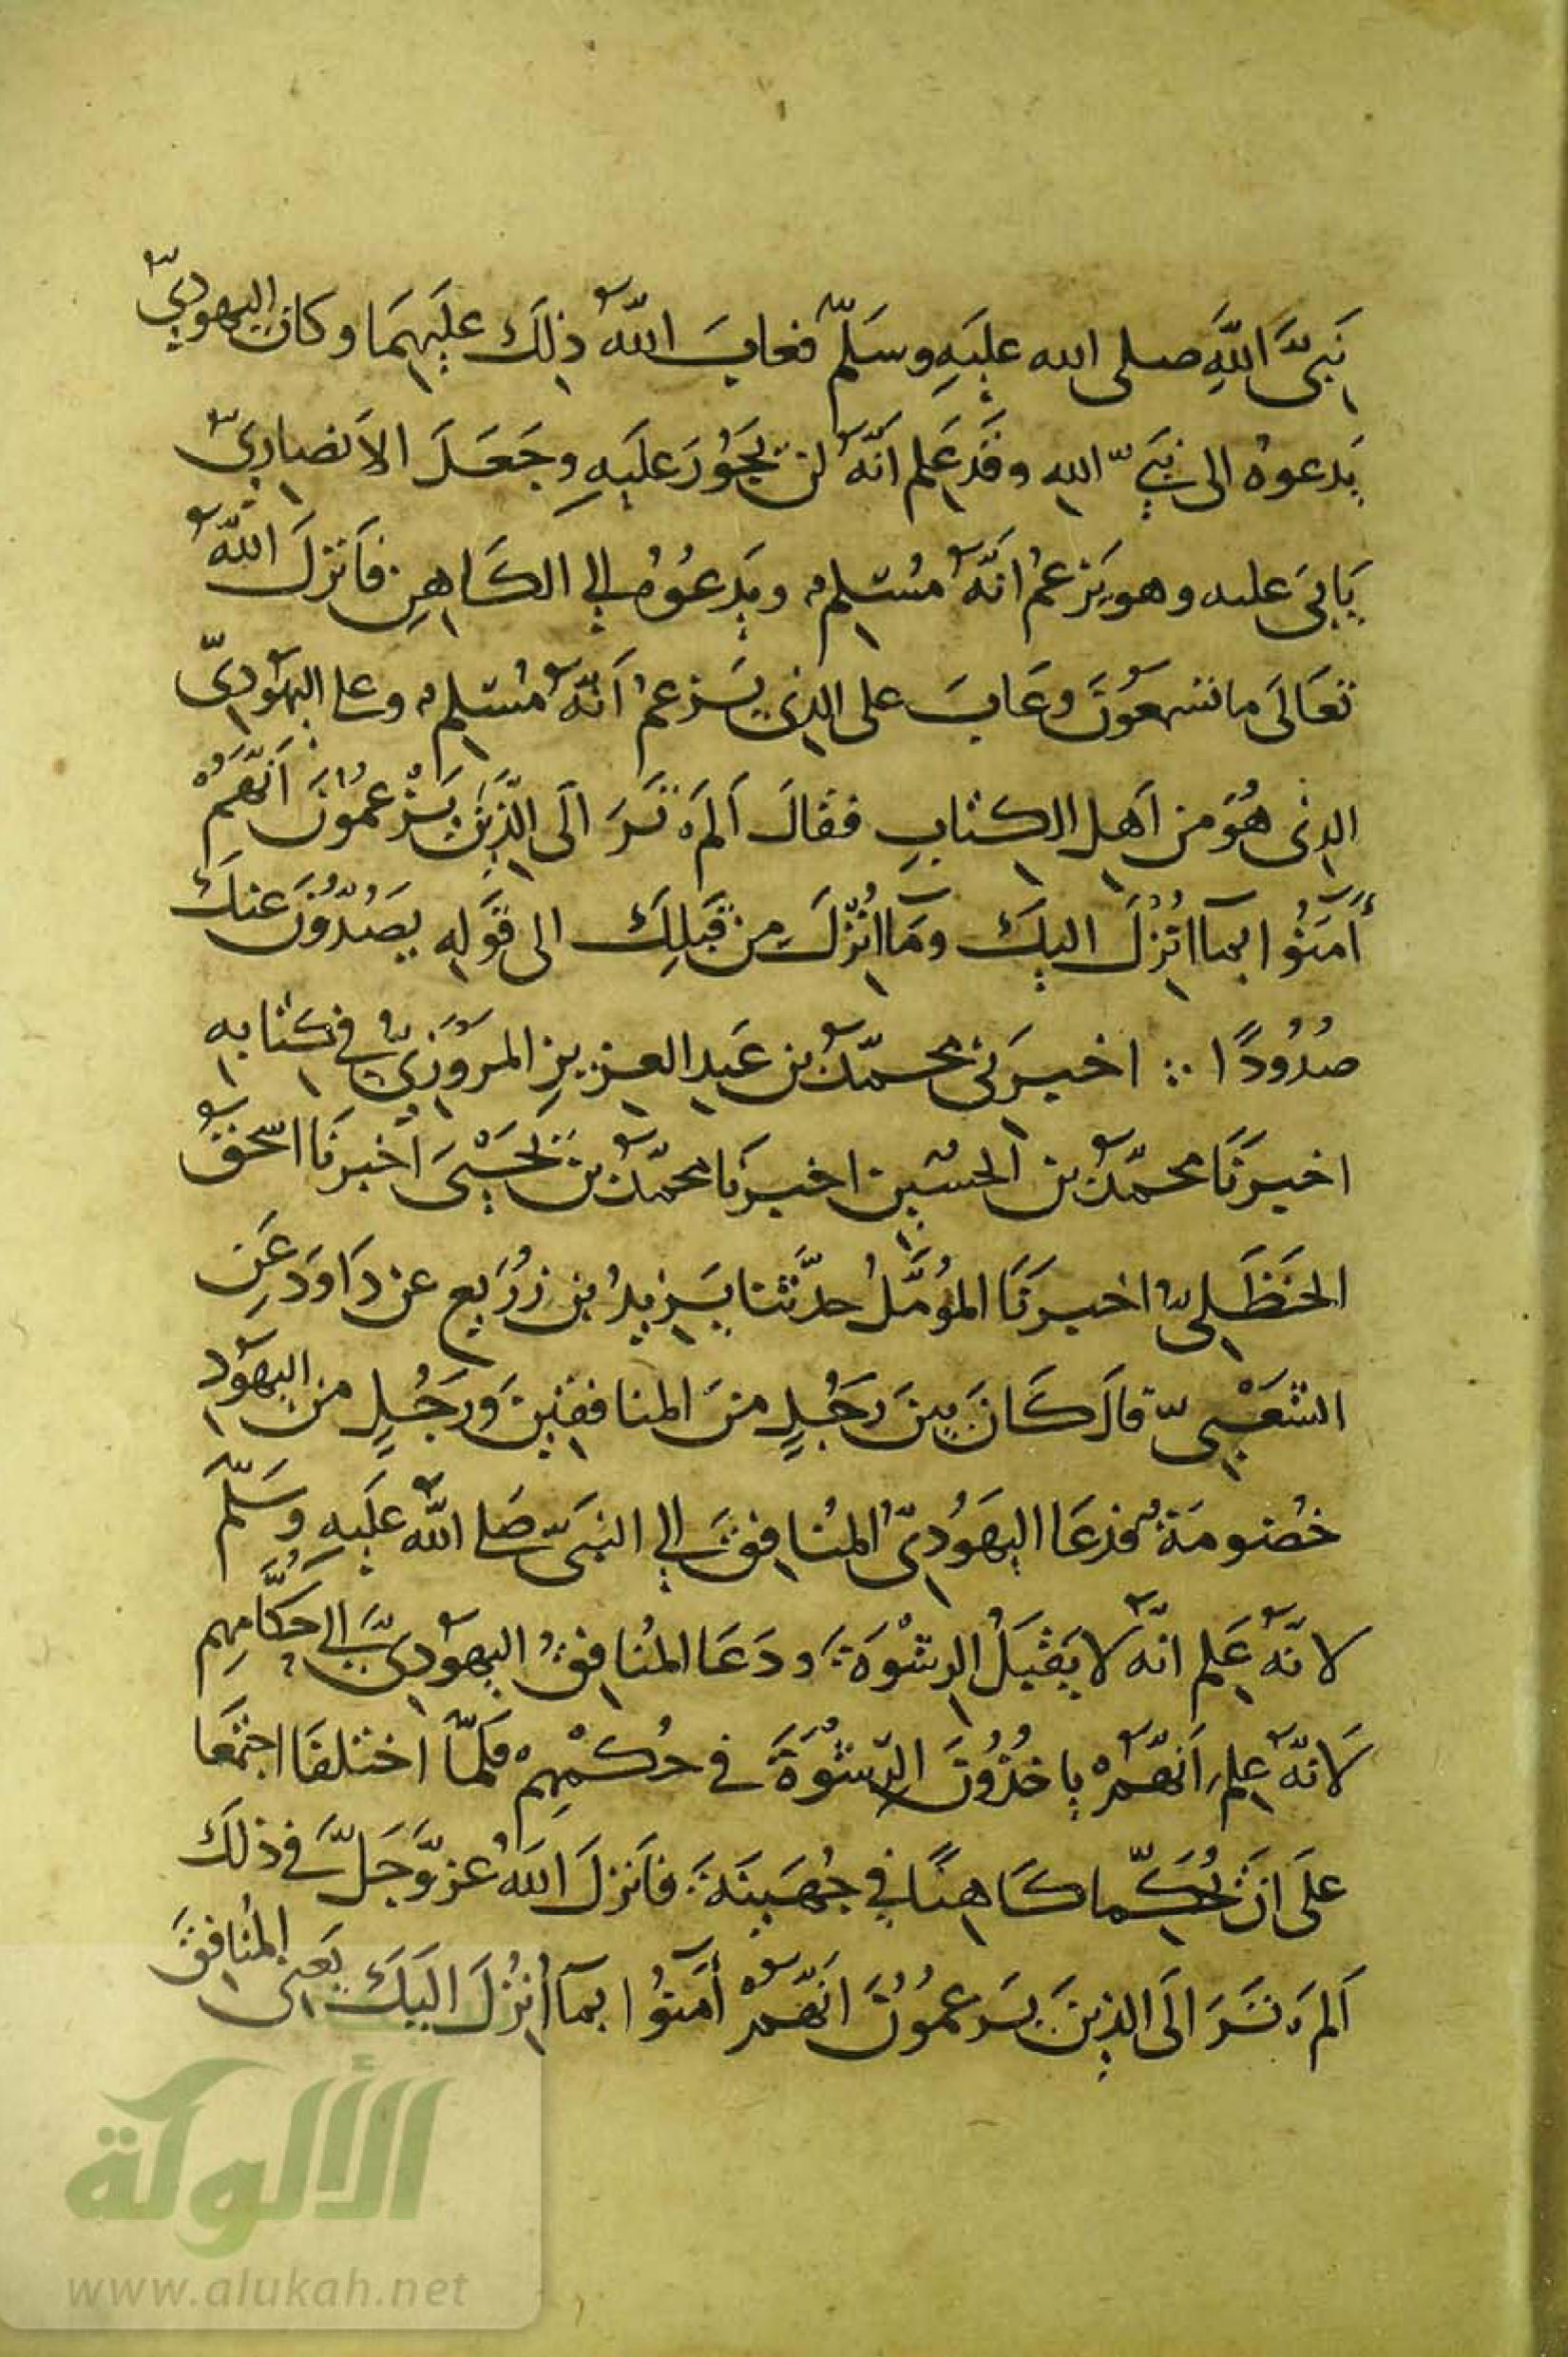 نَبِيَّ اللَّهِ صلى الله عليهِ وسَلّم فعابَ اللّهُ ذلِكَ عليهِمَا وكان اليهوديّ
يَدعوهُ الى نبيّ الله وقَد عَلم أنّهُ لن يجَوُرَ عليَهِ وجَعَلَ الاَنصاريّ
يَابَى عليه وهو يَزعمُ انّهُ مُسْلِمٌ ويَدعُوُهُ الي الكَاهِنِ فاَنزلَ اللّهُ
تعَالَى ما تسمعوُنَ وعَابَ على الذي يَزعمُ اَنّهُ مُسْلِمٌ وعلى اليهوديّ
الذى هُوَ من اَهلِ الكتابِ فقالَ اَلمْ تَرَ الَى الّذِينَ يَزْعمُوُنَ اَنّهَمُ
أَمَنُوا بمآ اُنْزِلَ اليكَ ومَا انُزِلَ مِن قَبلِكَ الى قوَلِهِ يصَدُّوُنَ عنكَ
صُدُودًا ∴ اخبرَنى محمّدُ بن عَبدِ العزيزِ المرَوَزِيُّ في كتابهِ
اخبرنَا محمّدُ بن الحسُين اخبرنَا محمّدُ بن يَحْيَى أخبرنَا اسحقُ
الحَنظَلِيُّ اخبرَنَا المؤُمَّلُ حدّثنا يَزيدُ بن زُرَيعٍ عن دَاوَدَ عَنِ
الشعَبْيِّ قالَ كَانَ بينَ رَجُلٍ منَ المنافقينَ وَرَجُلٍ من اليهوَدِ
خصُومَةٌ فدَعَا اليهَوُدِيُّ المنُافِقَ الي النبَيّ صَلى اللّهُ عليَهِ وَسَلّمَ
لانّهُ عَلِم انّهُ لا يقَبَلُ الرشْوَةَ ودَعَا المنُافِقُ اليهوُدِيَّ الي حكَّامِهِم
لاَنّهُ عَلِمَ اَنّهَمُْ ياخذُوُنَ الرّشْوَةَ في حُكمْهِمْ فَلمّاَ اختلفَا اجتمَعَا
علَى ان يُحكَّما كَاهنًا في جُهَينَةَ فاَنزلَ اللَهُ عزوَّجَلَّ في ذلكَ
اَلمَْ تَرَ الَى الذينَ يزَعموُنَ اَنّهَمُْ أمَنوُا بمآ أنُزِلَ اليَكَ يعَنى المنُافقَ
الألوكة
www.alukah.net